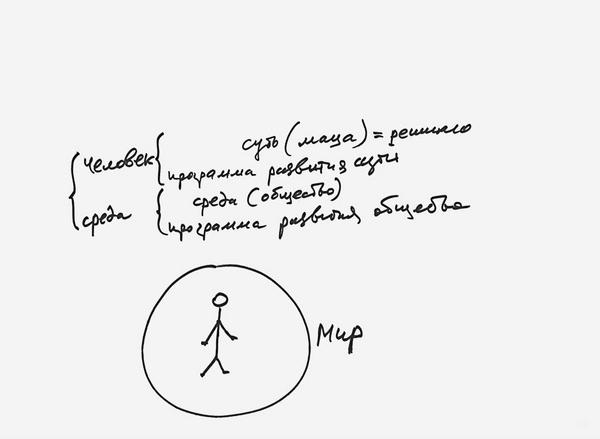 суть (маца) = решимо
человек программа развития сути
среда (общество)
среда программа развития общества
Мир